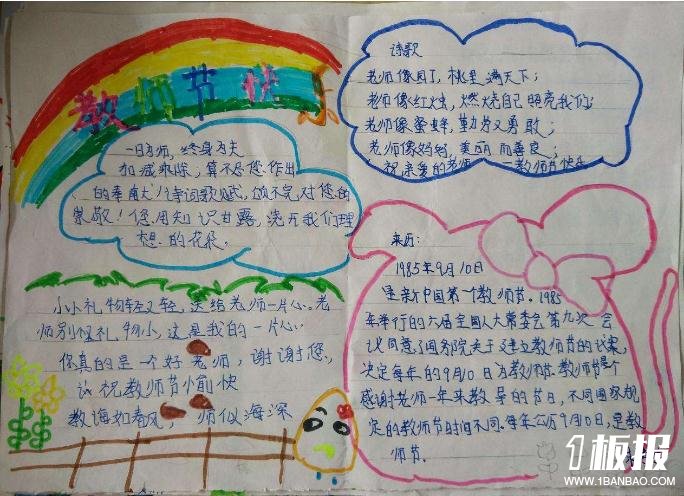 教师节快乐
一日为师，终身为夫
加减乘除，算不尽您作出
的奉献！诗词歌赋，颂不完对您的
崇敬！您用知识甘露，浇开我们理
想的花朵。
小小礼物轻又轻，送给老师一片心。老
师别怪礼物小，这是我的一片心。
您真的是一个好老师，谢谢您。
议祝教师节愉快
教诲如春风，师似海深
诗歌
老师像园丁，桃里满天下；
老师像红烛，燃烧自己照亮我们；
老师像蜜蜂，勤劳又勇敢；
老师像妈妈，美丽而善良；
祝亲爱的老师
教师节快乐
来历：
1985年9月10日
是新中国第一个教师节。1985
年举行的六届全国人大常委会第九次会
议同意了国务院关于建立教师节的议案，
决定每年的9月10日为教师节。教师节是个
感谢老师一年来教导的节日，不同国家规
定的教师节时间不同。每年公历9月10日，是教
师节。
1板报
WWW.1BANBAO.COM